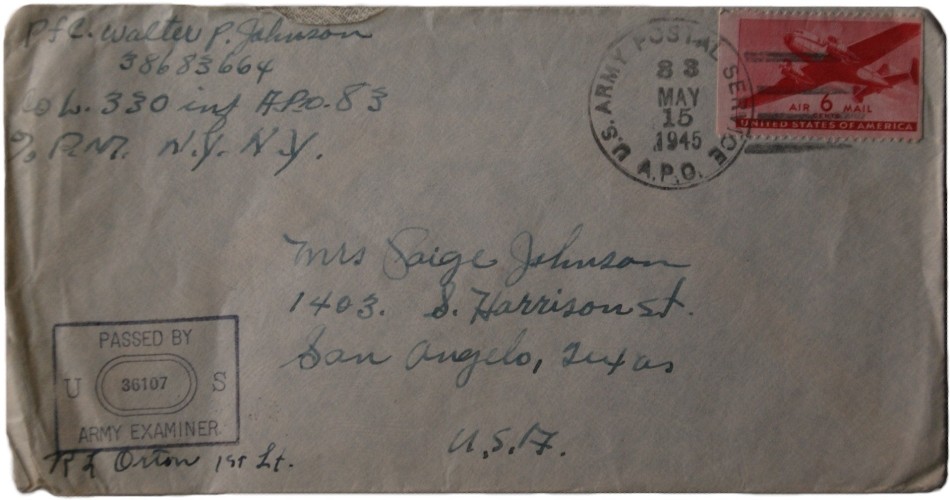 Pfc. Walter P. Johnson
38683664
Co L. 330 inf A.P.O. 83
℅ P.M. N.Y. N.Y.
U.S. ARMY POSTAL SERVICE
83
MAY
15
1945
A.P.O.
AIR 6 MAIL
CENTS
UNITED STATES OF AMERICA
Mrs Paige Johnson
1403. S. Harrison St.
San Angelo, Texas
U.S.A.
PASSED BY
U 36107 S
ARMY EXAMINER
R L Orton 1st Lt.